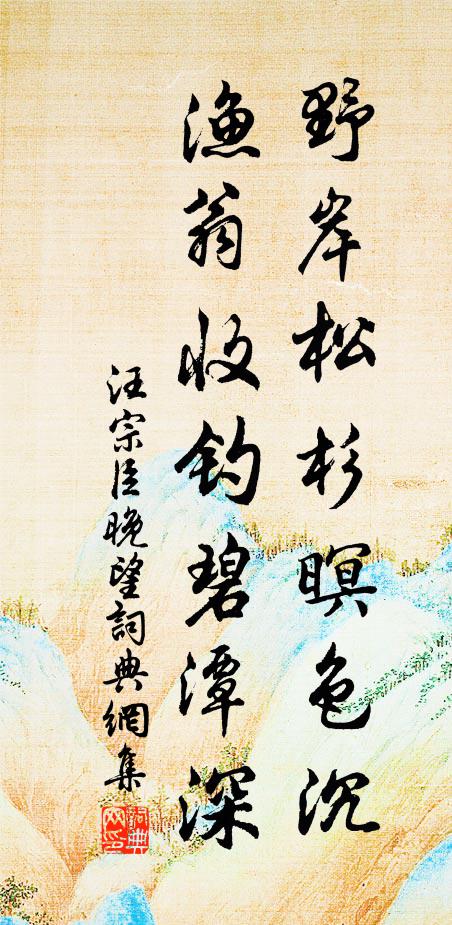 野岸松杉暝色沉
渔翁收钓碧潭深
汪宗臣晚望詞典網集
詞典